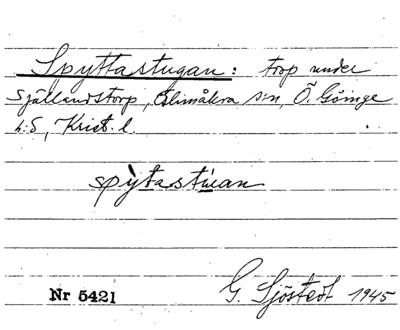 Spyttastugan: torp under
Sjællandstorp, Glimåkra s:n, Ö. Göinge
h:d, Krist. l.
spỳtastu̱an
Nr 5421
G. Sjöstedt 1945